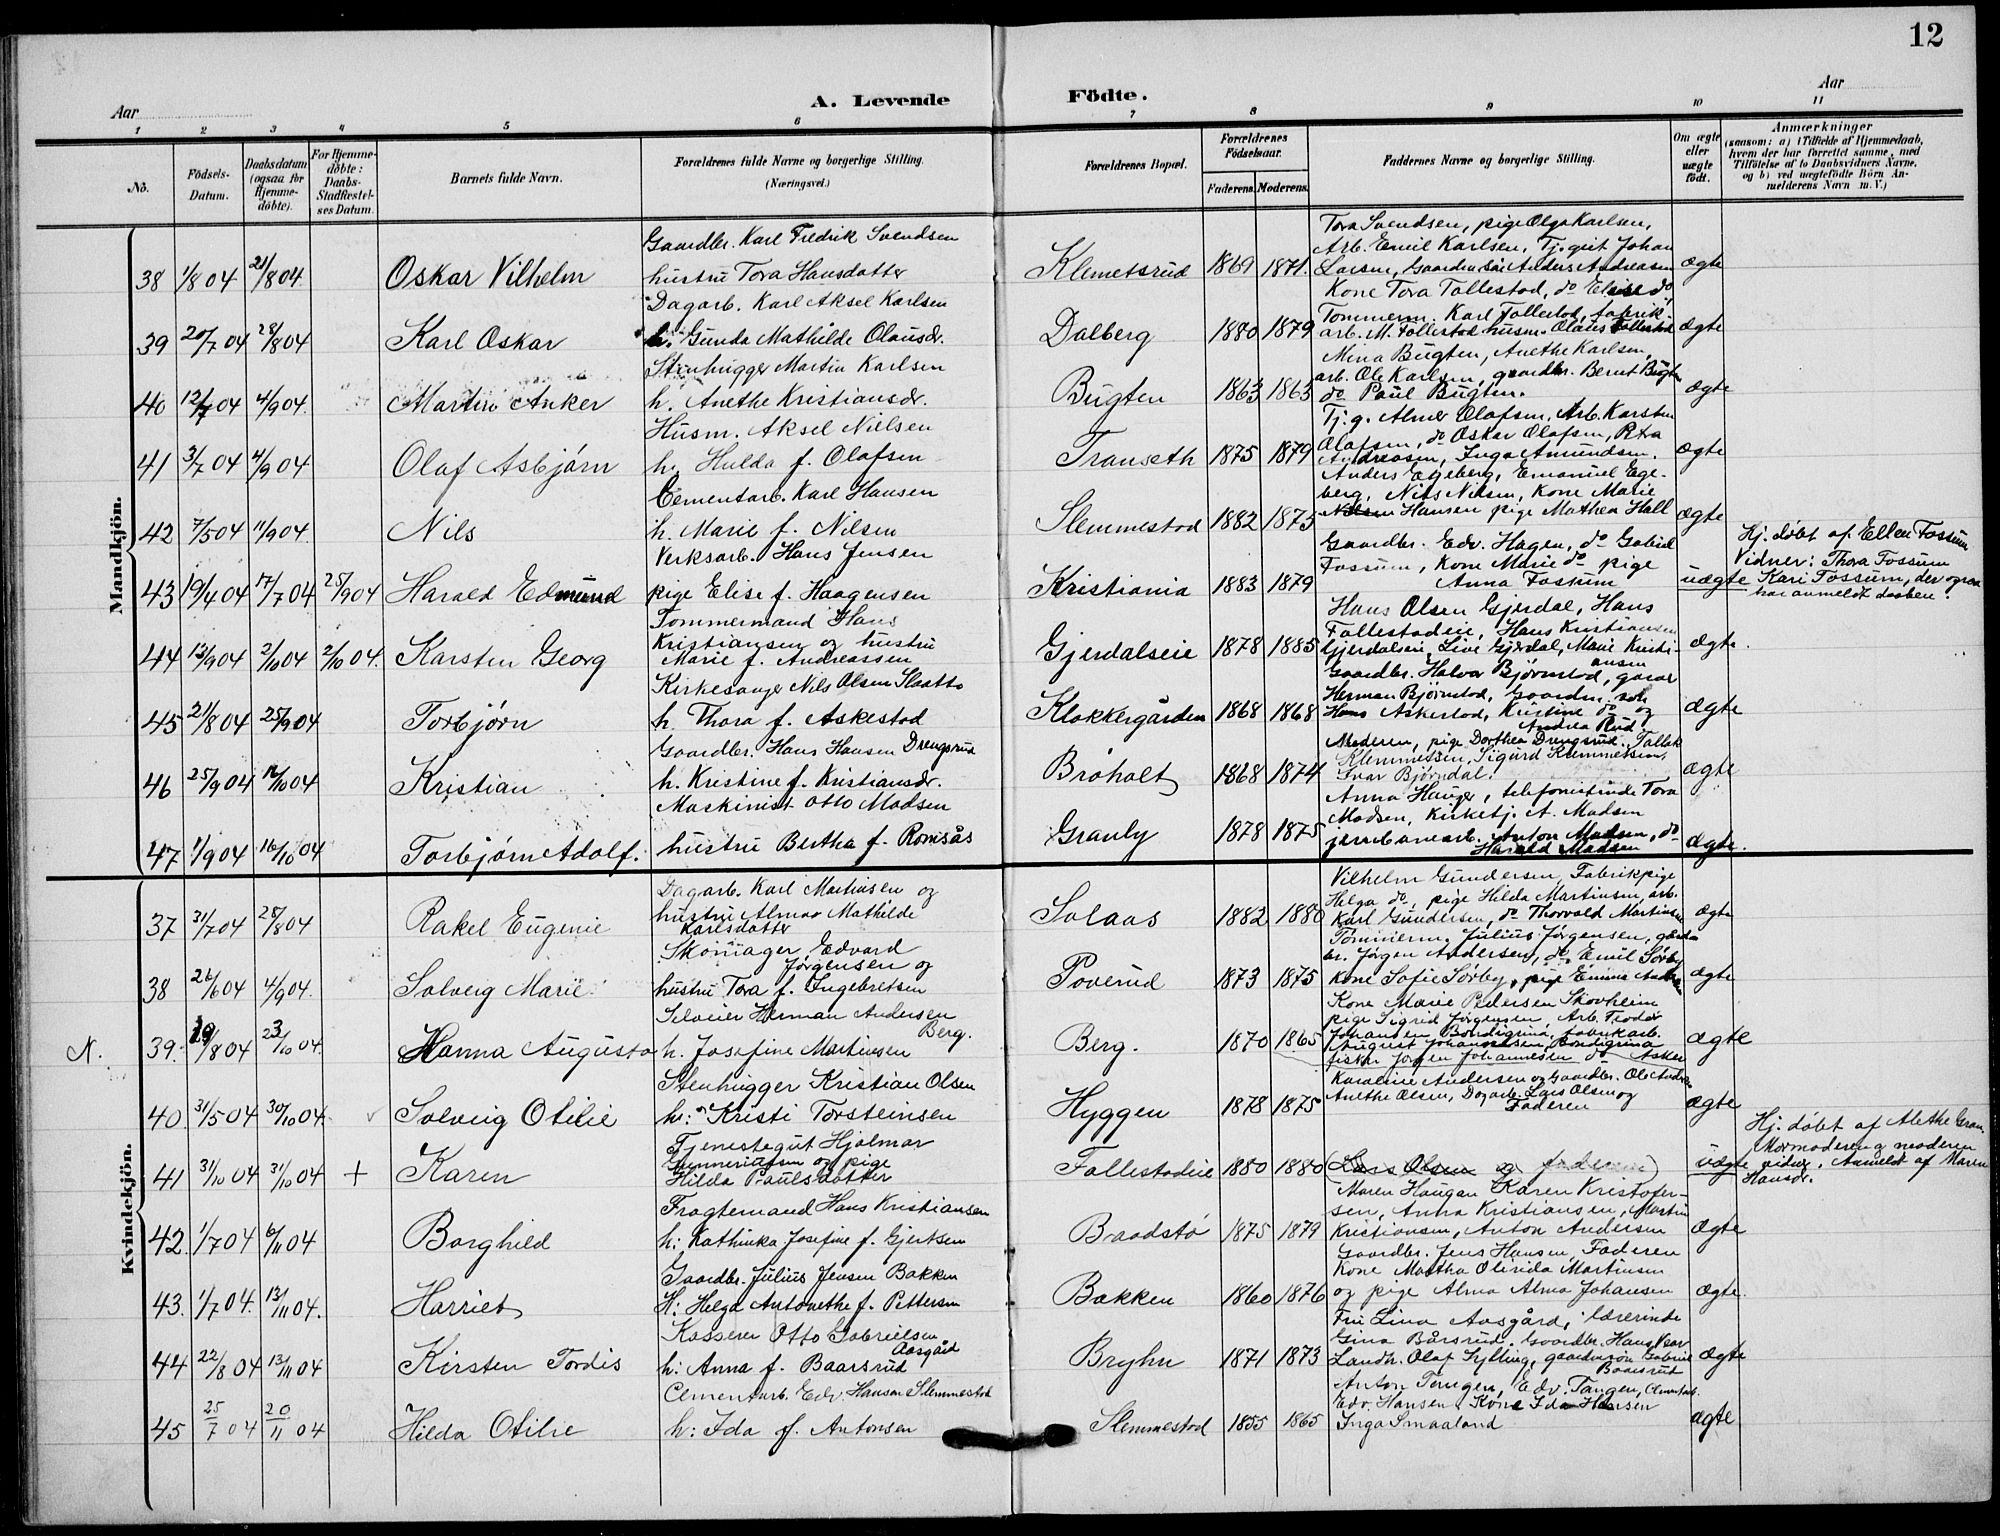 12
Aar
A. Levende
Födte.
Aar
1 2 3 4 5 6 7 8 9 10 11
No.
Födsels-Datum.
Daabsdatum (ogsaa for Hjemme-döbte).
For Hjemme-döbte: Daabs-Stadfæstel-ses Datum.
Barnets fulde Navn.
Forældrenes fulde Navne og borgerlige Stilling.
(Næringsvei.)
Forældrenes Bopæl.
Forældrenes Födselsaar.
Faderens. Moderens.
Faddernes Navne og borgerlige Stilling.
Om ægte eller uægte födt.
Anmærkninger
(saasom: a) i Tilfælde af Hjemmedaab, hvem der har forrettet samme, med Tilföielse af to Daabsvidners Navne, og b) ved uægtefödte Börn An-melderens Navn m.V.)
Mandkjön.
38 1/8 04 21/8 04 Oskar Vilhelm
Gaardbr. Karl Fredrik Svendsen
hustru Tora Hansdatter
Klemetsrud 1869 1871
Tora Svendsen, pige Olga Karlsen,
Arb. Emil Karlsen, Tj. gut Johan
Larsen, Gaardm. søn Anders Andreasen
ægte
39 20/7 04 28/8 04 Karl Oskar
Dagarb. Karl Aksel Karlsen
h. Gunda Mathilde Olausdr.
Dalberg 1880 1879
Kone Tora Follestad, do Elise do
Tømmerm. Karl Follestad, fabrik-
arb. M. Follestad husm. Olaus Follestad
ægte
40 12/7 04 4/9 04 Martin Anker
Stenhugger Martin Karlsen
h. Anethe Kristiansdr.
Bugten 1863 1863
Mina Bugten, Anethe Karlsen,
arb. Ole Karlsen, gaardbr. Bernt Bugten
do Paul Bugten.
ægte
41 3/7 04 4/9 04 Olaf Asbjørn
Husm. Aksel Nielsen
h. Hulda f. Olafsen
Transeth 1875 1879
Tj. g. Almer Olafsen, Arb. Karsten
Olafsen, do Oskar Olafsen, Petra
Andreasen, Inga Amundsen.
ægte
42 7/5 04 11/9 04 Nils
Cementarb. Karl Hansen
h. Marie f. Nilsen
Slemmestad 1882 1875
Anders Egeberg, Emanuel Ege-
berg, Nils Nilsen, Kone Marie
Nilsen Hansen pige Mathea Hall
ægte
43 19/4 04 17/7 04 25/9 04 Harald Edmund
Verksarb. Hans Jensen
pige Elise f. Haagensen
Kristiania 1883 1879
Gaardbr. Edv. Hagen, do Gabriel
Fossum, Kone Marie do pige
Anna Fossum
uægte
Hj. døbt af Ellen Fossum
Vidner: Thora Fossum
Kari Fossum, der ogsaa
har anmeldt daaben.
44 13/9 04 2/10 04 2/10 04. Karsten Georg
Tømmermand Hans
Kristiansen og hustru
Marie f. Andreassen
Gjerdalseie 1878 1885
Hans Olsen Gjerdal, Hans
Follestadeie, Hans Kristiansen
Gjerdalseie, Live Gjerdal, Marie Kristi-
ansen
ægte.
45 21/8 04 25/9 04 Torbjørn
Kirkesanger Nils Olsen Slaatto
h. Thora f. Askestad
Klokkergården 1868 1868
Gaardbr. Halvor Bjørnstad, gaar
Herman Bjørnstad, Gaardm. søn
Hans Askestad, Kristine do og
Andrea Rud
ægte
46 25/9 04 16/10 04 Kristian
Gaardbr. Hans Hansen Drengsrud
h. Kristine f. Kristiansdr.
Brøholt 1868 1874
Moderen, pige Dorthea Drengsrud. Tallak
Klemmetsen, Sigurd Klemmetsen,
Ivar Bjørndal.
ægte
47 1/9 04 16/10 04 Torbjørn Adolf.
Maskinist Otto Madsen
hustru Bertha f. Romsås
Granly 1878 1875
Anna Hauger, telefonistinde Tora
Madsen, Kirketj. A. Madsen
jernbanearb. Anton Madsen, do
Harald Madsen
ægte.
Kvindekjön.
37 31/7 04 28/8 04 Rakel Eugenie
Dagarb. Karl Martinsen og
hustru Almar Mathilde
Karlsdatter
Solaas 1882 1880
Vilhelm Gundersen, Fabrikpige
Helga do, pige Hilda Martinsen, arb.
Karl Gundersen, do Thorvald Martinsen
ægte
38 26/6 04 4/9 04. Solveig Marie
Skomager Edvard
Jørgensen og
hustru Tora f. Ingebretsen
Poverud 1873 1875
Tømmerm. Julius Jørgensen, gaard-
br. Jørgen Andersen, do Emil Sørby
Kone Sofie Sørby, pige Emma Andersen
ægte
N. 39. 19/8 04 23/10 04. Hanna Augusta
Selveier Herman Andersen
Berg.
h. Josefine Martinsen
Berg. 1870 1865
Kone Marie Pedersen Skovheim
pige Sigrid Jørgensen, Arb. Teodor
Johansen Bondigrina, fabrikarb.
August Johannesen Bondigrina
fisker Jørgen Johannesen do Asker
ægte
40 31/5 04 30/10 04. Solveig Otilie
Stenhugger Kristian Olsen
h: Kristi Torsteinsen
Hyggen 1878 1875
Karoline Andersen og Gaardbr. Ole Andre
Anethe Olsen, Dagarb. Lars Olsen og
Faderen
ægte
41 31/10 04 31/10 04 + Karen
Tjenestegut Hjalmar
Gunneriussen og pige
Hilda Paulsdatter
Follestadeie 1880 1880
(Lars Olsen og faderen)
uægte
Hj. døbt af Alethe Gran
Mormoderen og moderen
vidner. Anmeldt af Maren
Hansdr.
42. 1/7 04 6/11 04 Borghild
Fragtemand Hans Kristiansen
h: Kathinka Josefine f. Gjertsen
Braadstø 1875 1879
Maren Haugan Karen Kristofer-
sen, Anna Kristiansen, Martin
Kristiansen, Anton Andersen
ægte
43. 1/7 04. 13/11 04. Harriet
Gaardbr. Julius Jensen Bakken
H: Helga Antonethe f. Pettersen
Bakken 1860 1876
Gaardbr. Jens Hansen, Faderen
Kone Martha Olivida Martinsen
og pige Alma Alma Johansen
ægte.
44 22/8 04 13/11 04 Kirsten Tordis
Kasserer Otto Gabrielsen
Aasgård
h: Anna f. Baarsrud
Bryhn 1871 1873
Fru Lina Aasgård, lærerinde
Gina Bårsrud, Gaardbr. Hans
Landh. Olaf Sylling, gaardmsøn Gabriel
Baarsrud
ægte
45 25/7 04 20/11 04 Hilda Otilie
Cementarb. Edv. Hansen Slemmestad
h: Ida f. Antonsen
Slemmestad 1855 1865
Anton Tangen, Edv. Tangen, Cementarb.
Edv. Hansen, Kone Ida Hansen
Inga Smaaland
ægte